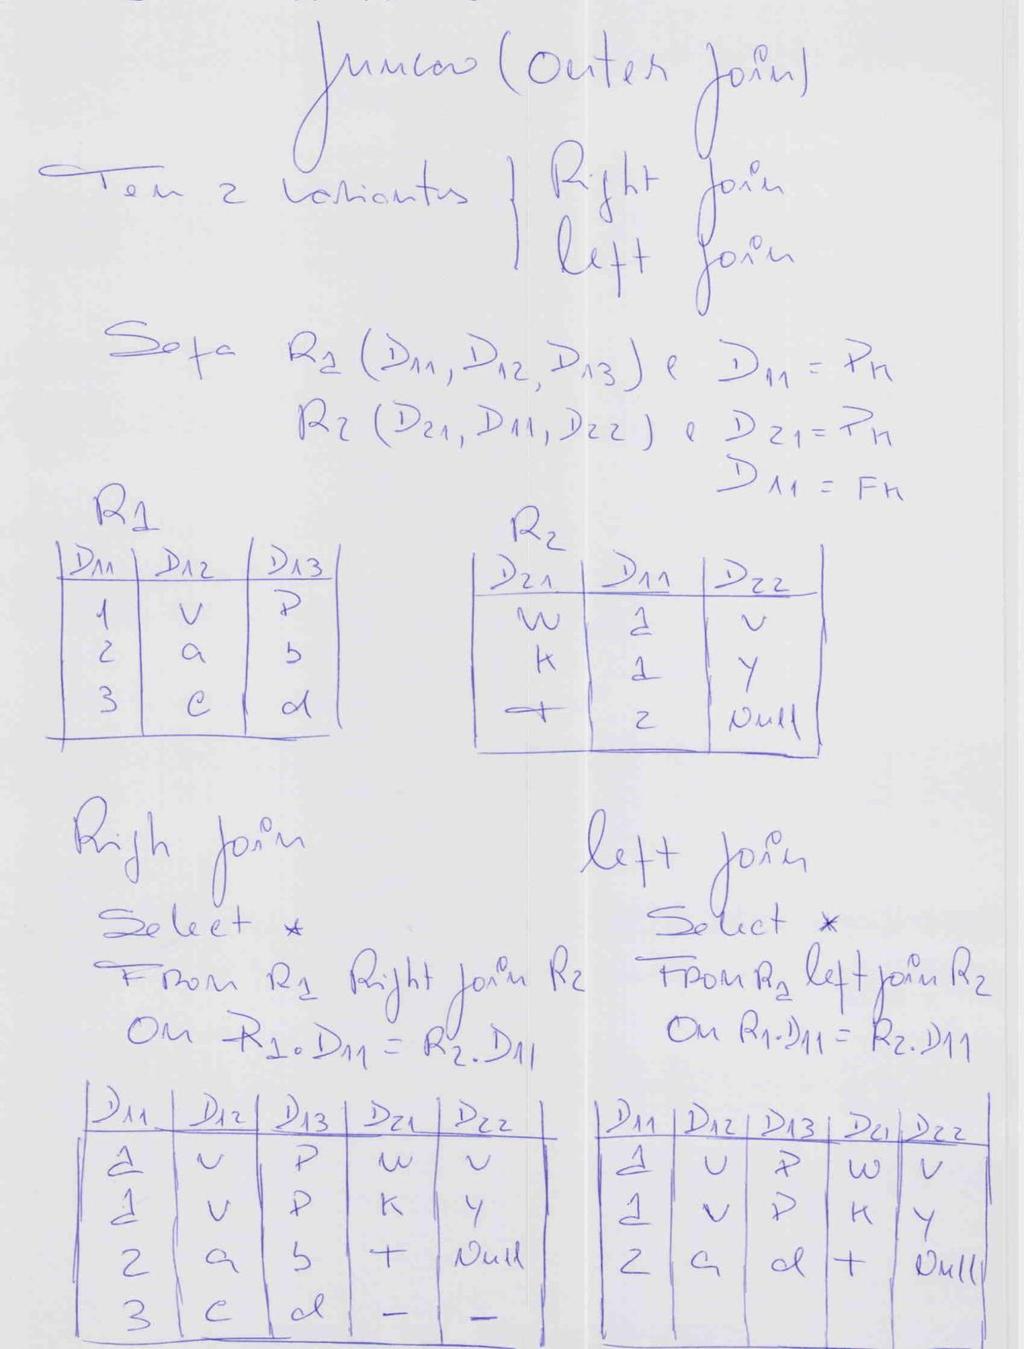 Juncao (Outer Join)
Tem 2 variantes } Right Join
left Join
Seja R1 (D11, D12, D13) e D11 = PK
R2 (D21, D11, D22) e D21 = PK
D11 = FK
R1
D11 D12 D13
1 v P
2 a b
3 c d
R2
D21 D11 D22
w 1 v
K 1 y
t 2 Null
Righ Join
Select *
FROM R1 Right Join R2
On R1.D11 = R2.D11
D11 D12 D13 D21 D22
1 v P w v
1 v P K y
2 a b t Null
3 c d - -
left Join
Select *
FROM R1 left Join R2
On R1.D11 = R2.D11
D11 D12 D13 D21 D22
1 v P w v
1 v P K y
2 a d t Null